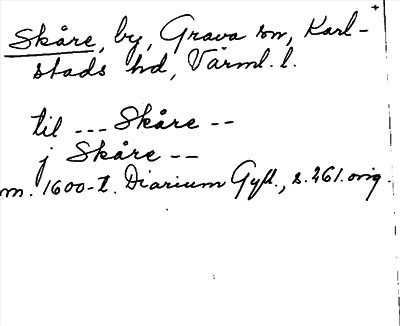 Skåre, by, Grava sn, Karl-
stads hd, Värml. l.
til --- Skåre --
j Skåre --
m. 1600-t. Diarium Gyll., s. 261. orig.